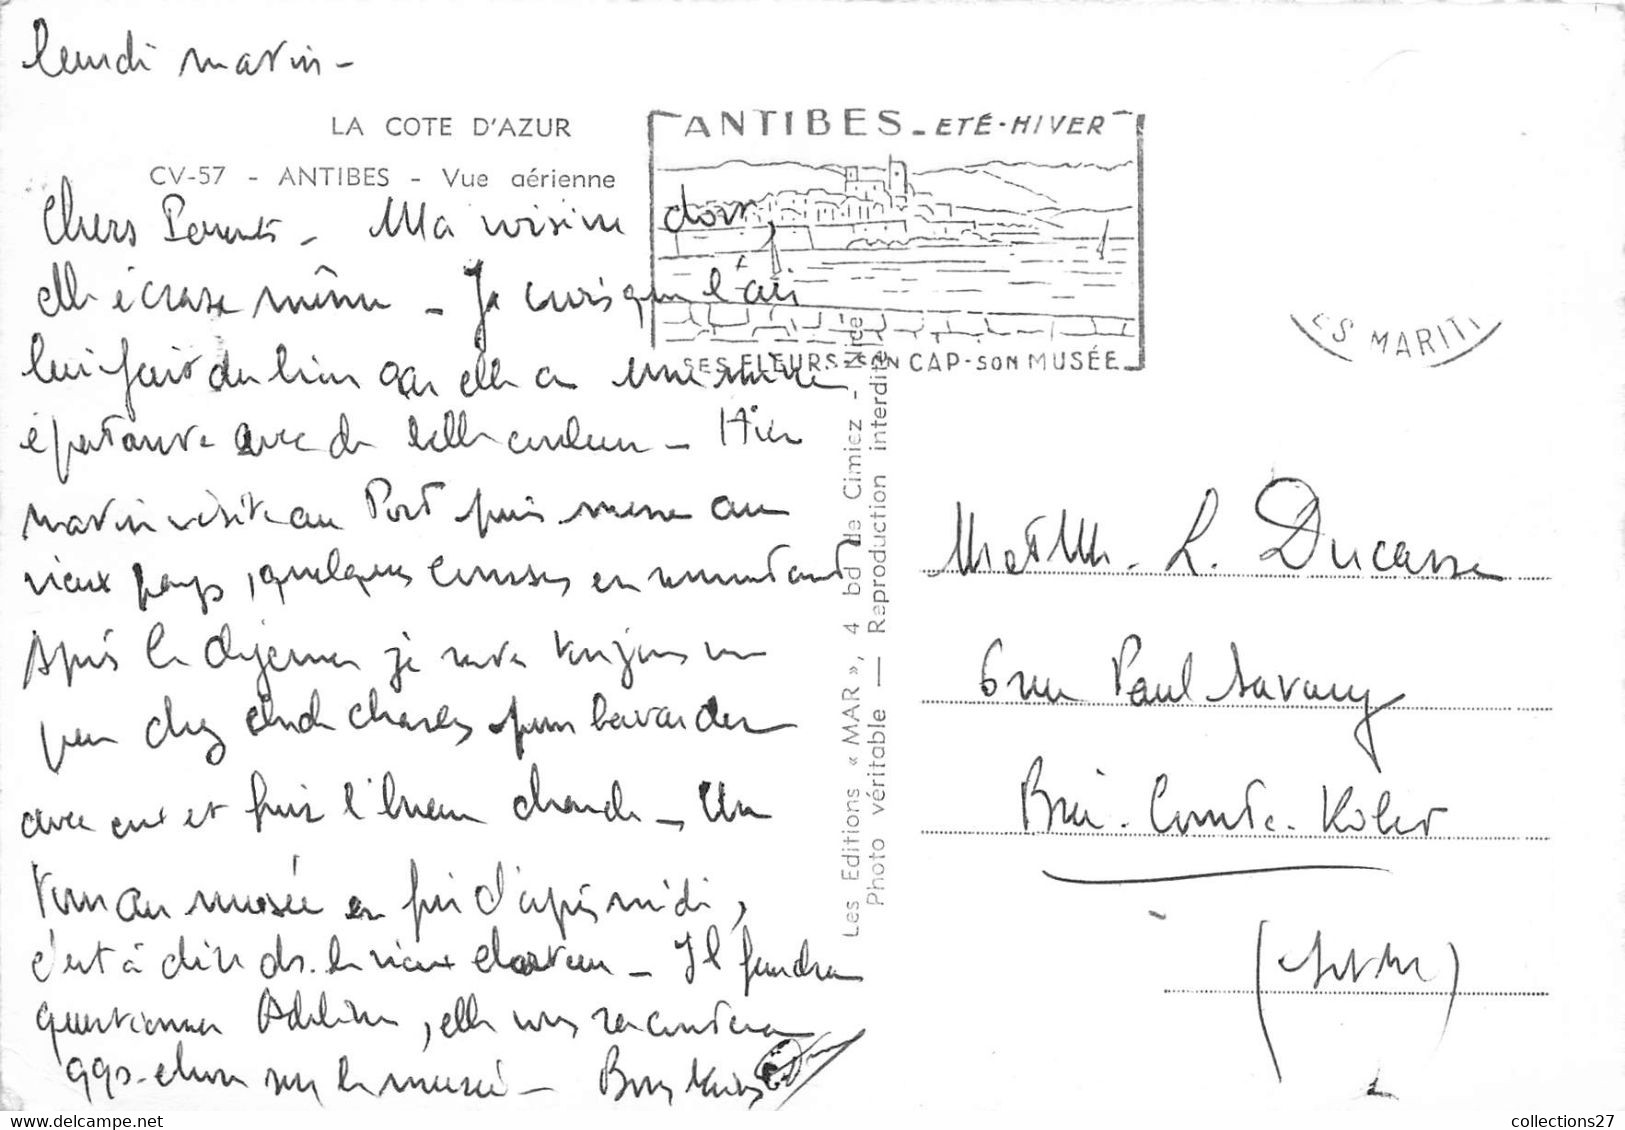 Lundi matin -
LA COTE D'AZUR
CV-57 - ANTIBES - Vue aérienne
ANTIBES - ETÉ - HIVER
SES FLEURS - SON CAP - SON MUSÉE
ES MARITI
Chers Parents - Ma voisine dort,
elle écrase même - Je crois que l'air
lui fait du bien car elle a une mine
épatante avec de belles couleurs - Hier
matin visite au Port puis messe au
vieux pays, quelques courses en remontant
Après le déjeuner je reste toujours un
peu chez Charles pour bavarder
avec eux et fuir l'heure chaude - Un
tour au musée en fin d'après midi,
c'est à dire ds. le vieux château - Il faudra
questionner Adeline, elle vous racontera
qqs. chose sur le musée - Bons baisers
Les Editions « MAR », 4 bd de Cimiez - Nice
Photo véritable — Reproduction interdite
M et Mme. L. Ducasse
6 rue Paul Savary
Brie. Comte. Robert
(S et M)
collections27